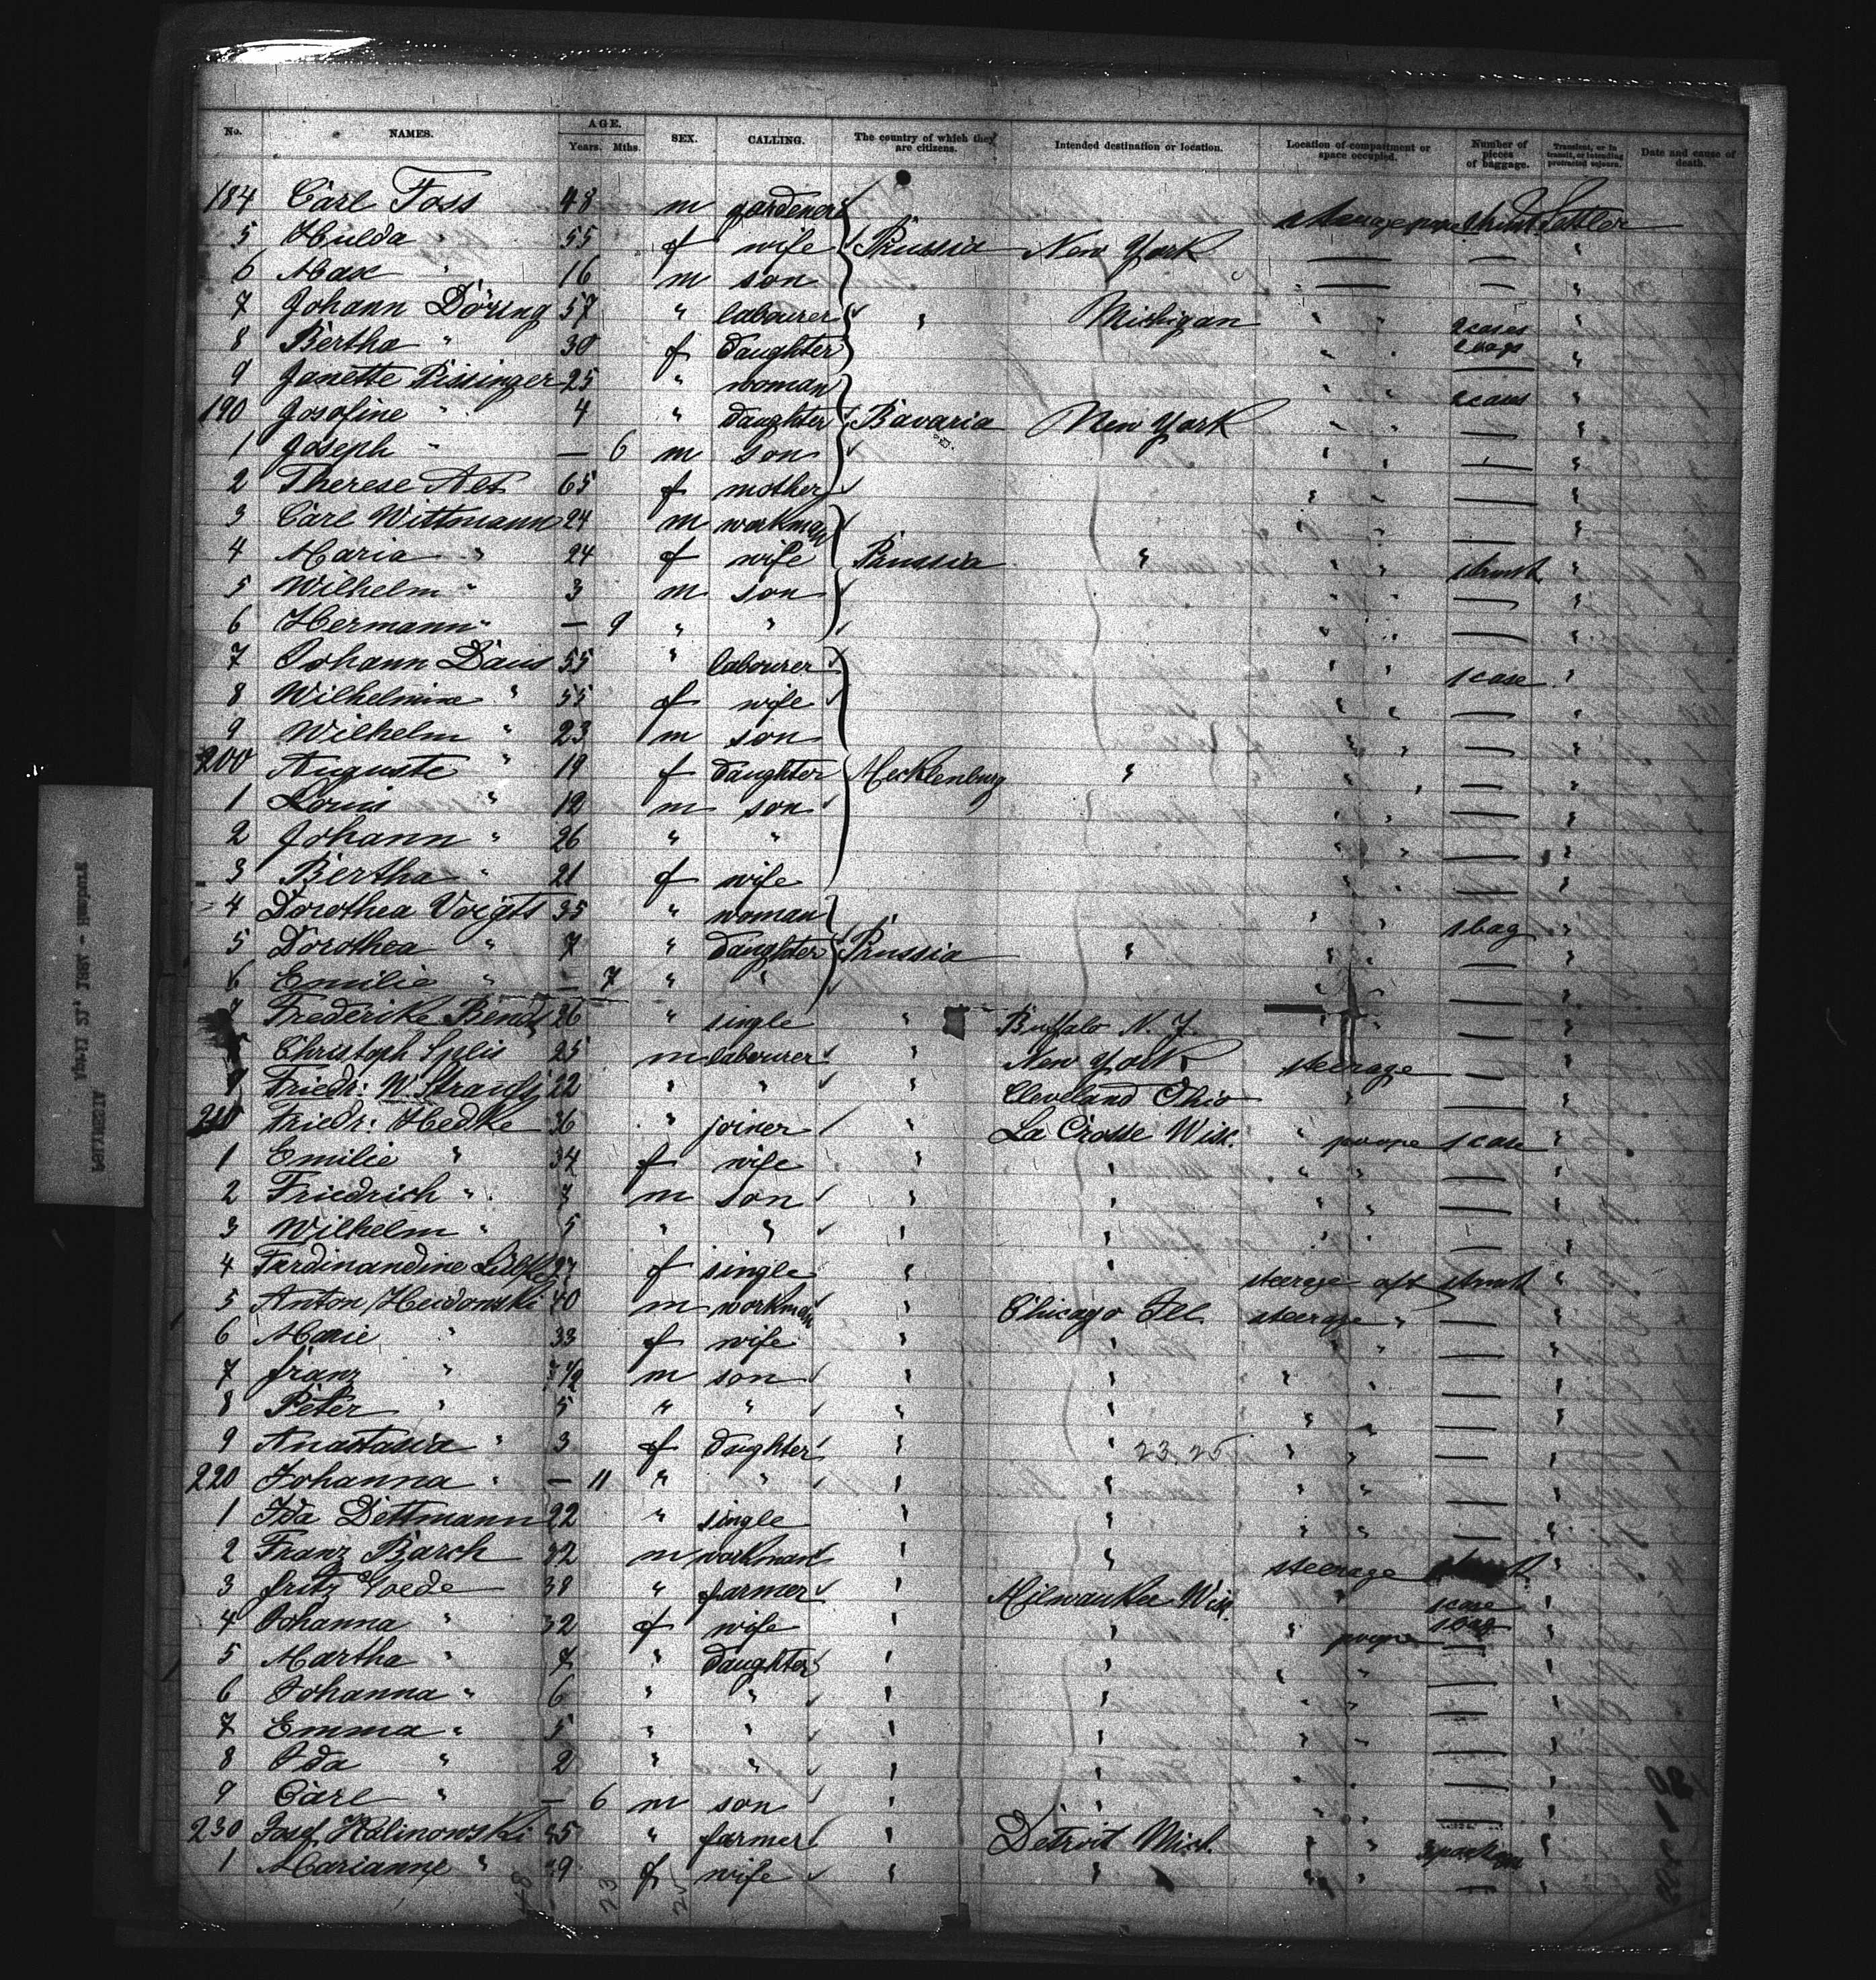 No. NAMES. AGE. Years. Mths. SEX. CALLING. The country of which they are citizens. Intended destination or location. Location of compartment or space occupied. Number of pieces of baggage. Transient, or in transit, or intending protracted sojourn. Date and cause of death.
184 Carl Foss 48 m gardener Settler
5 Hulda 55 f wife Prussia New York — — "
6 Max " 16 m son — — "
7 Johann Döring 57 " labourer " Michigan " " 2 cases "
8 Bertha " 30 f daughter " " 2 bags "
9 Janette Pissinger 25 " woman " " 2 cases "
190 Josofine " 4 " daughter Bavaria New York " " — "
1 Joseph " — 6 m son " " — "
2 Therese Alt 65 f mother " " — "
3 Carl Wittmann 24 m workman " " — "
4 Maria " 24 f wife Prussia " " " 1 trunk "
5 Wilhelm " 3 m son " " — "
6 Hermann " — 9 " " " " — "
7 Johann Daus 55 " labourer " " 1 case "
8 Wilhelmine " 55 f wife " " — "
9 Wilhelm " 23 m son " " — "
200 Auguste " 19 f daughter Mecklenburg " " " — "
1 Louis " 12 m son " " — "
2 Johann " 26 " " " " — "
3 Bertha " 21 f wife " " — "
4 Dorothea Voigts 35 " woman " " 1 bag "
5 Dorothea " 7 " daughter Prussia " " " — "
6 Emilie " — 7 " " " " — "
7 Frederike 26 " single " Buffalo N. Y. " " — "
Christoph Splis 25 m labourer " New York steerage — "
9 Friedr: W. Strauss 22 " " " Cleveland Ohio " — "
210 Friedr: Hedke 36 " joiner " La Crosse Wisc. " poope 1 case "
1 Emilie " 34 f wife " " " " — "
2 Friedrich " 7 m son " " " " — "
3 Wilhelm " 5 " " " " " " — "
4 Ferdinandine f single " " steerage aft 1 trunk "
5 Anton Heidonski 40 m workman " Chicago Ill. steerage " — "
6 Marie " 33 f wife " " " " — "
7 Franz " m son " " " " — "
8 Peter " 5 " " " " " " — "
9 Anastasia " 3 f daughter " " 23 25 " " — "
220 Johanna " — 11 " " " " " " — "
1 Ida Dettmann 22 " single " " " " — "
2 Franz Barch 32 m workman " " steerage "
3 Fritz Goede 38 " farmer " Milwaukee Wisc. " 1 case "
4 Johanna " 32 f wife " " " poope 1 bag "
5 Martha " 7 " daughter " " " " — "
6 Johanna " 6 " " " " " " — "
7 Emma " 5 " " " " " " — "
8 Ida " 2 " " " " " " — "
9 Carl " — 6 m son " " " " — "
230 Josef Kalinowski " farmer " Detroit Mich. " " "
1 Marianne " f wife " " " " — "
48 23 25